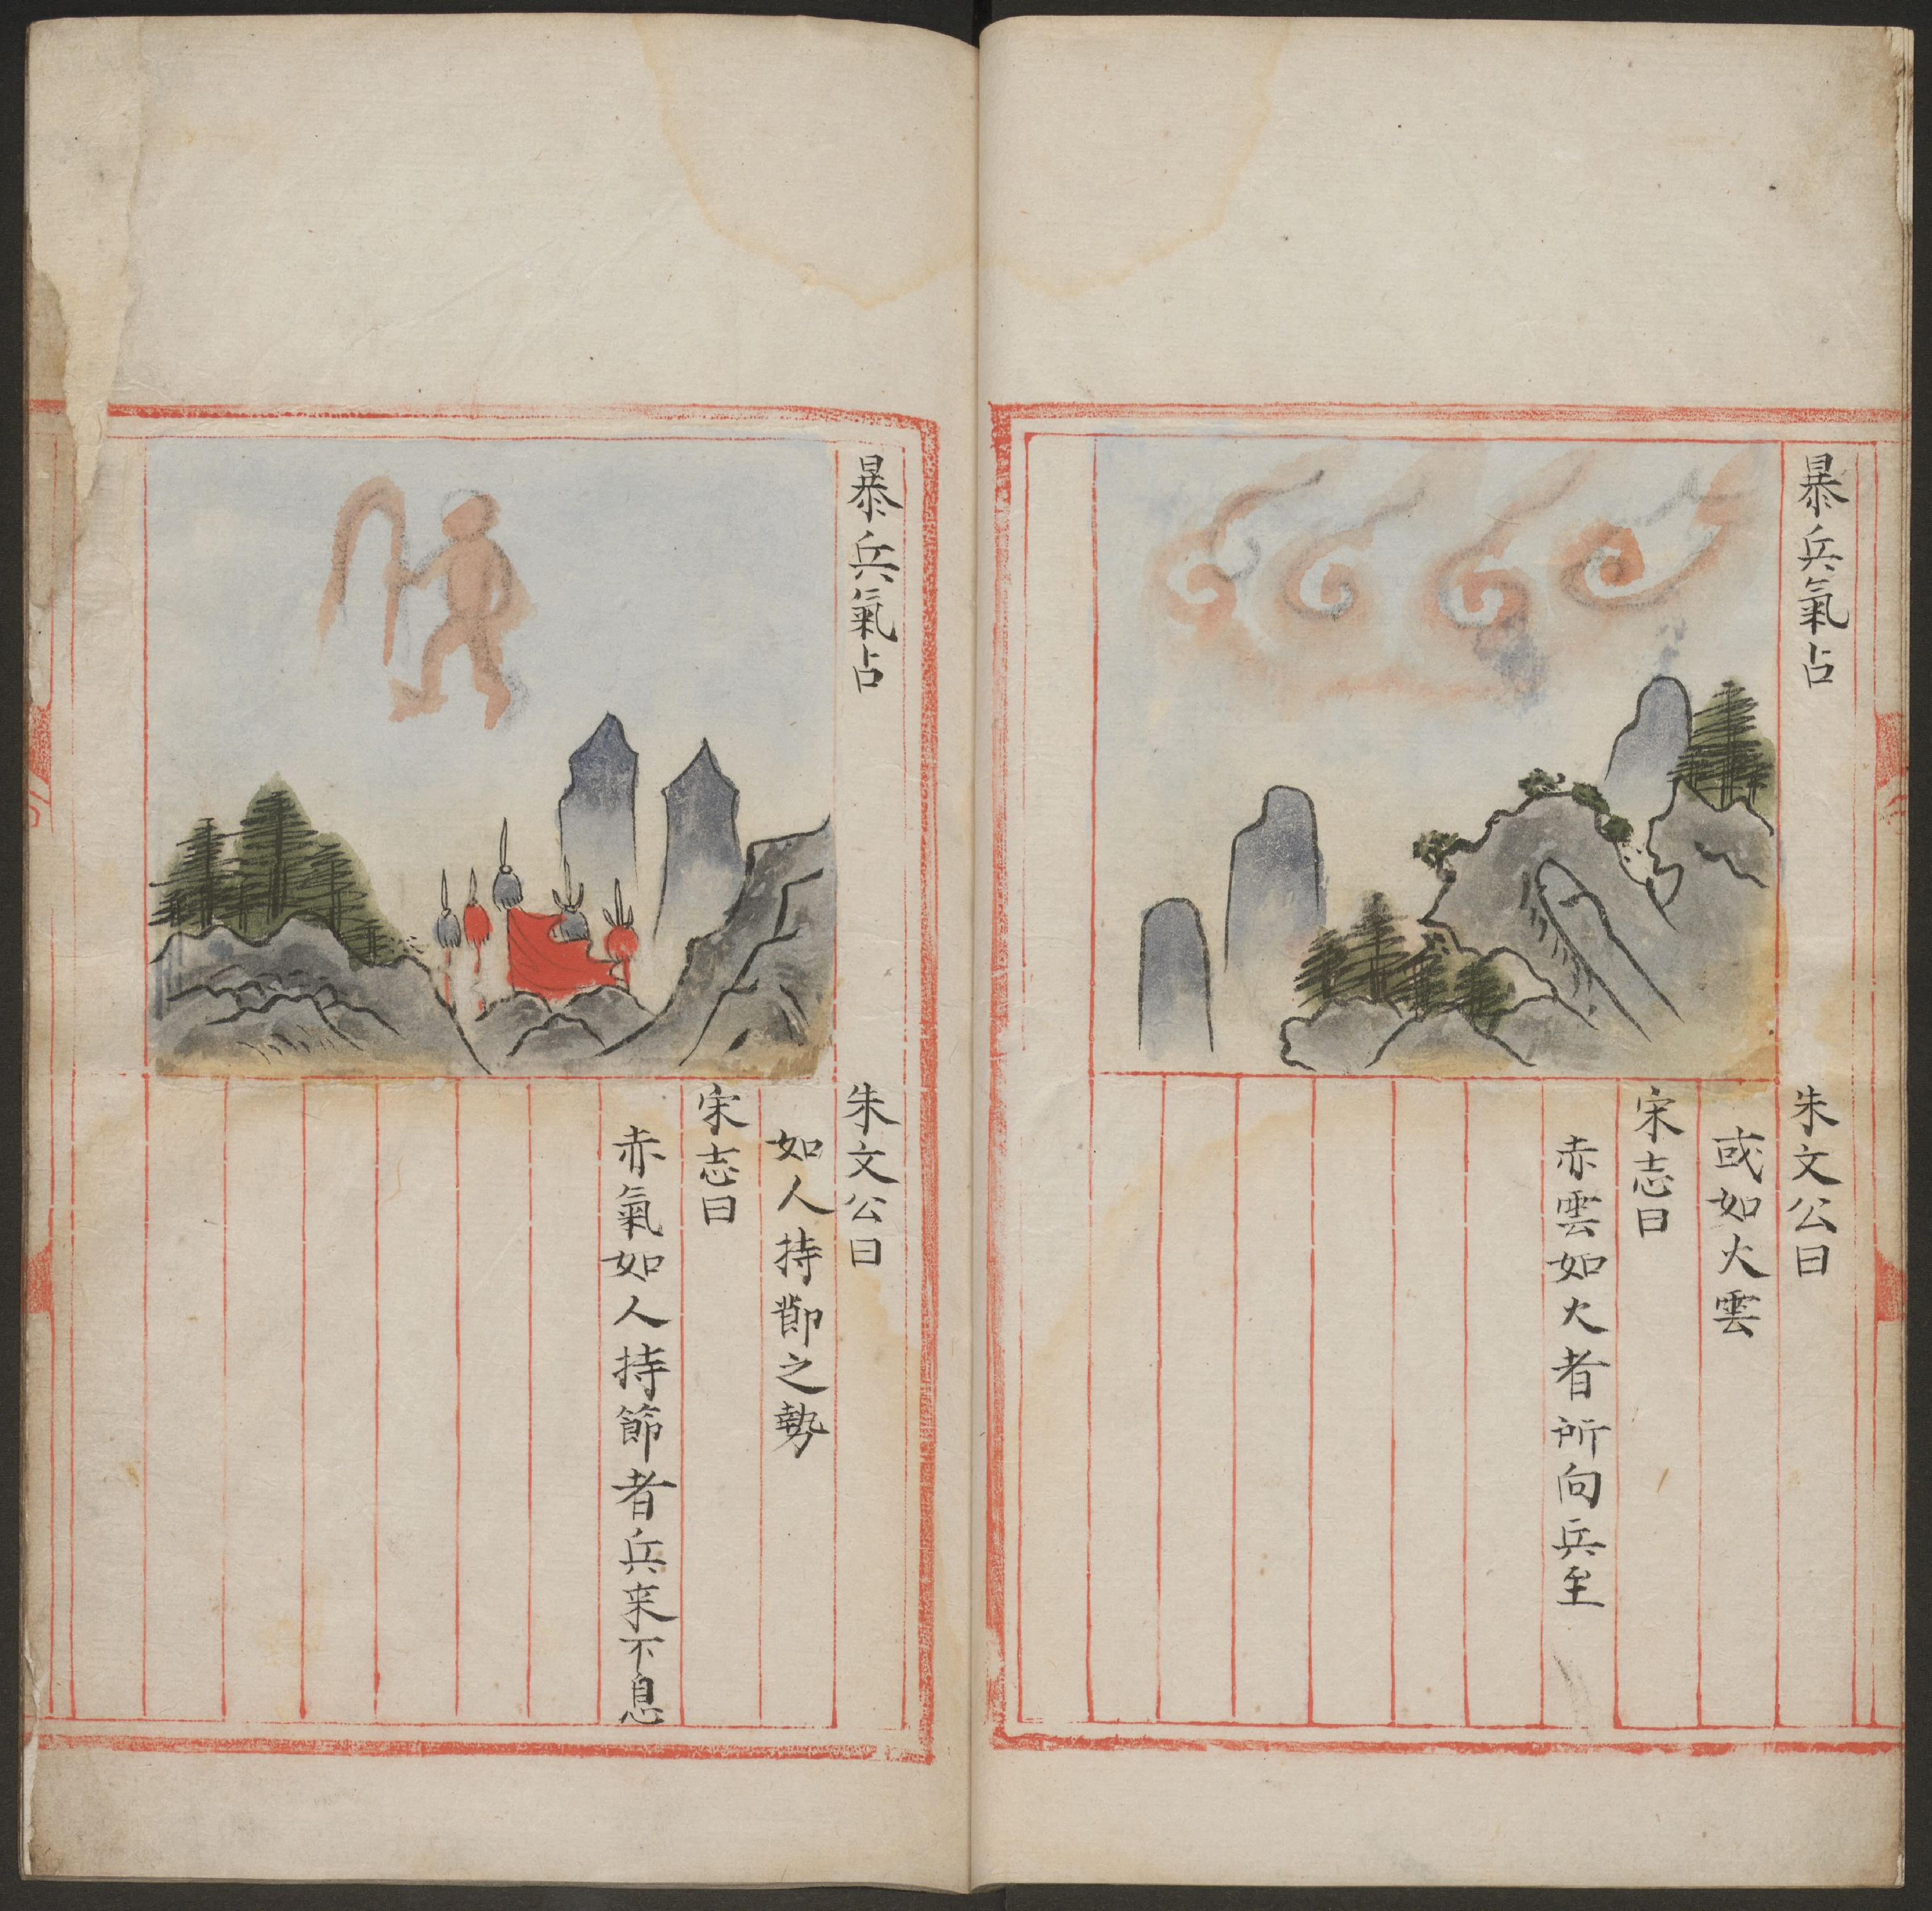 暴兵氣占
朱文公曰
或如火雲
宋志曰
赤雲如火者所向兵至
暴兵氣占
朱文公曰
如人持節之勢
宋志曰
赤氣如人持節者兵来不息